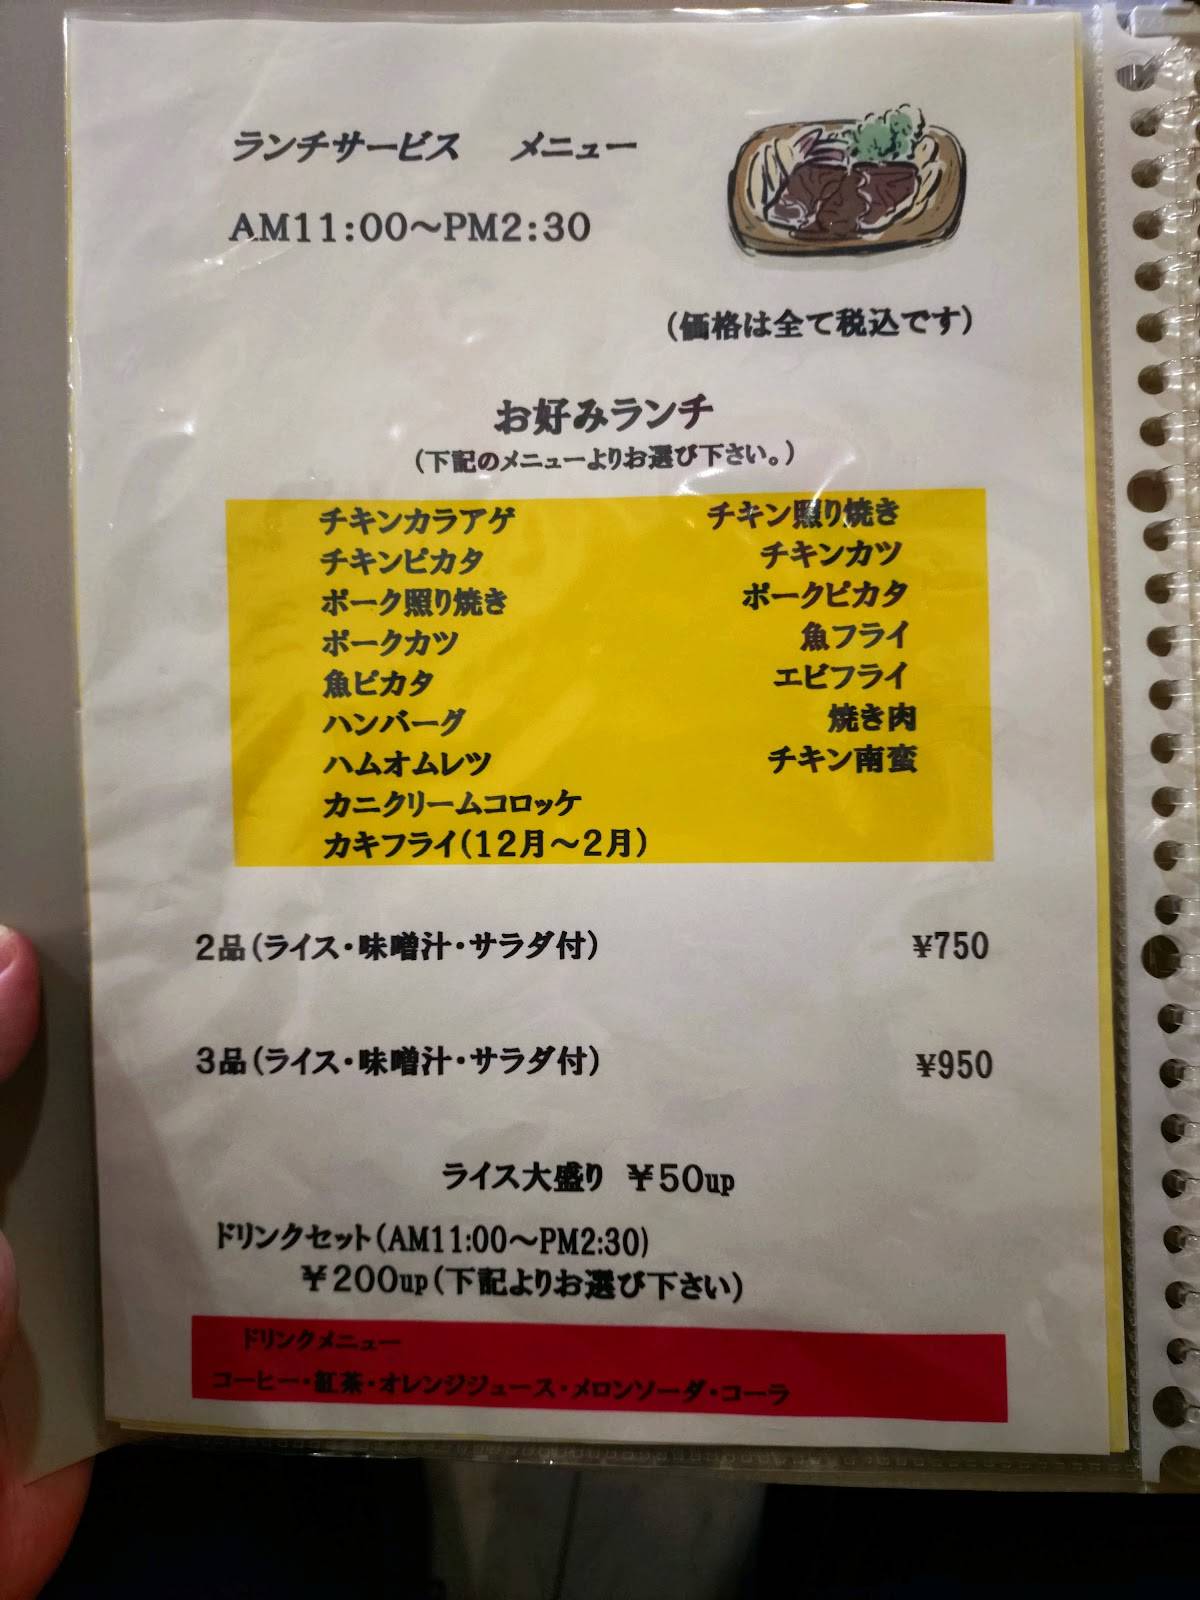 ランチサービス　メニュー
AM11:00～PM2:30
(価格は全て税込です)
お好みランチ
(下記のメニューよりお選び下さい。)
チキンカラアゲ　チキン照り焼き
チキンピカタ　チキンカツ
ポーク照り焼き　ポークピカタ
ポークカツ　魚フライ
魚ピカタ　エビフライ
ハンバーグ　焼き肉
ハムオムレツ　チキン南蛮
カニクリームコロッケ
カキフライ(12月～2月)
2品(ライス・味噌汁・サラダ付)　¥750
3品(ライス・味噌汁・サラダ付)　¥950
ライス大盛り　¥50up
ドリンクセット(AM11:00～PM2:30)
¥200up(下記よりお選び下さい)
ドリンクメニュー
コーヒー・紅茶・オレンジジュース・メロンソーダ・コーラ